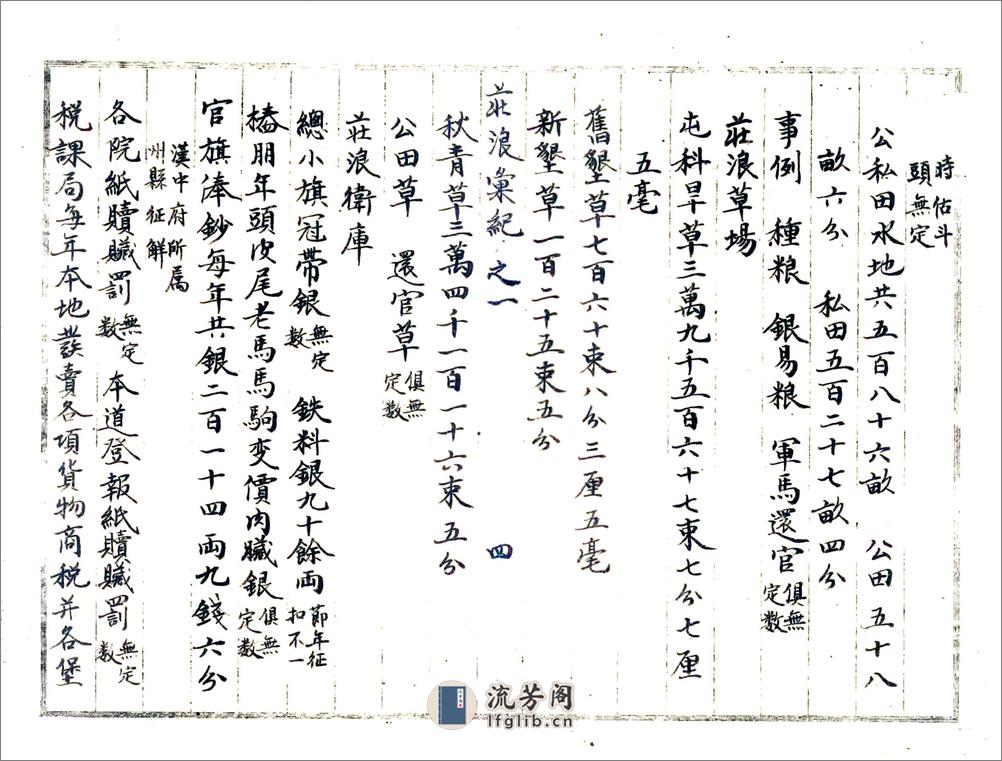 時估斗頭無定
公私田水地共五百八十六畝　公田五十八
畝六分　私田五百二十七畝四分
事例　種粮　銀易粮　軍馬還官俱無定数
莊浪草場
屯科旱草三萬九千五百六十七束七分七厘
五毫
舊墾草七百六十束八分三厘五毫
新墾草一百二十五束五分
莊浪彙紀之一　四
秋青草三萬四千一百一十六束五分
公田草　還官草俱無定数
莊浪衛庫
總小旗冠帶銀無定数　鉄料銀九十餘両節年征扣不一
樁朋年頭皮尾老馬馬駒变價肉臟銀俱無定数
官旗俸鈔每年共銀二百一十四両九錢六分
漢中府所属州縣征解
各院紙贖贓罰無定数　本道登報紙贖贓罰無定数
税課局每年本地發賣各項貨物商税并各堡
流芳阁
lfglib.cn